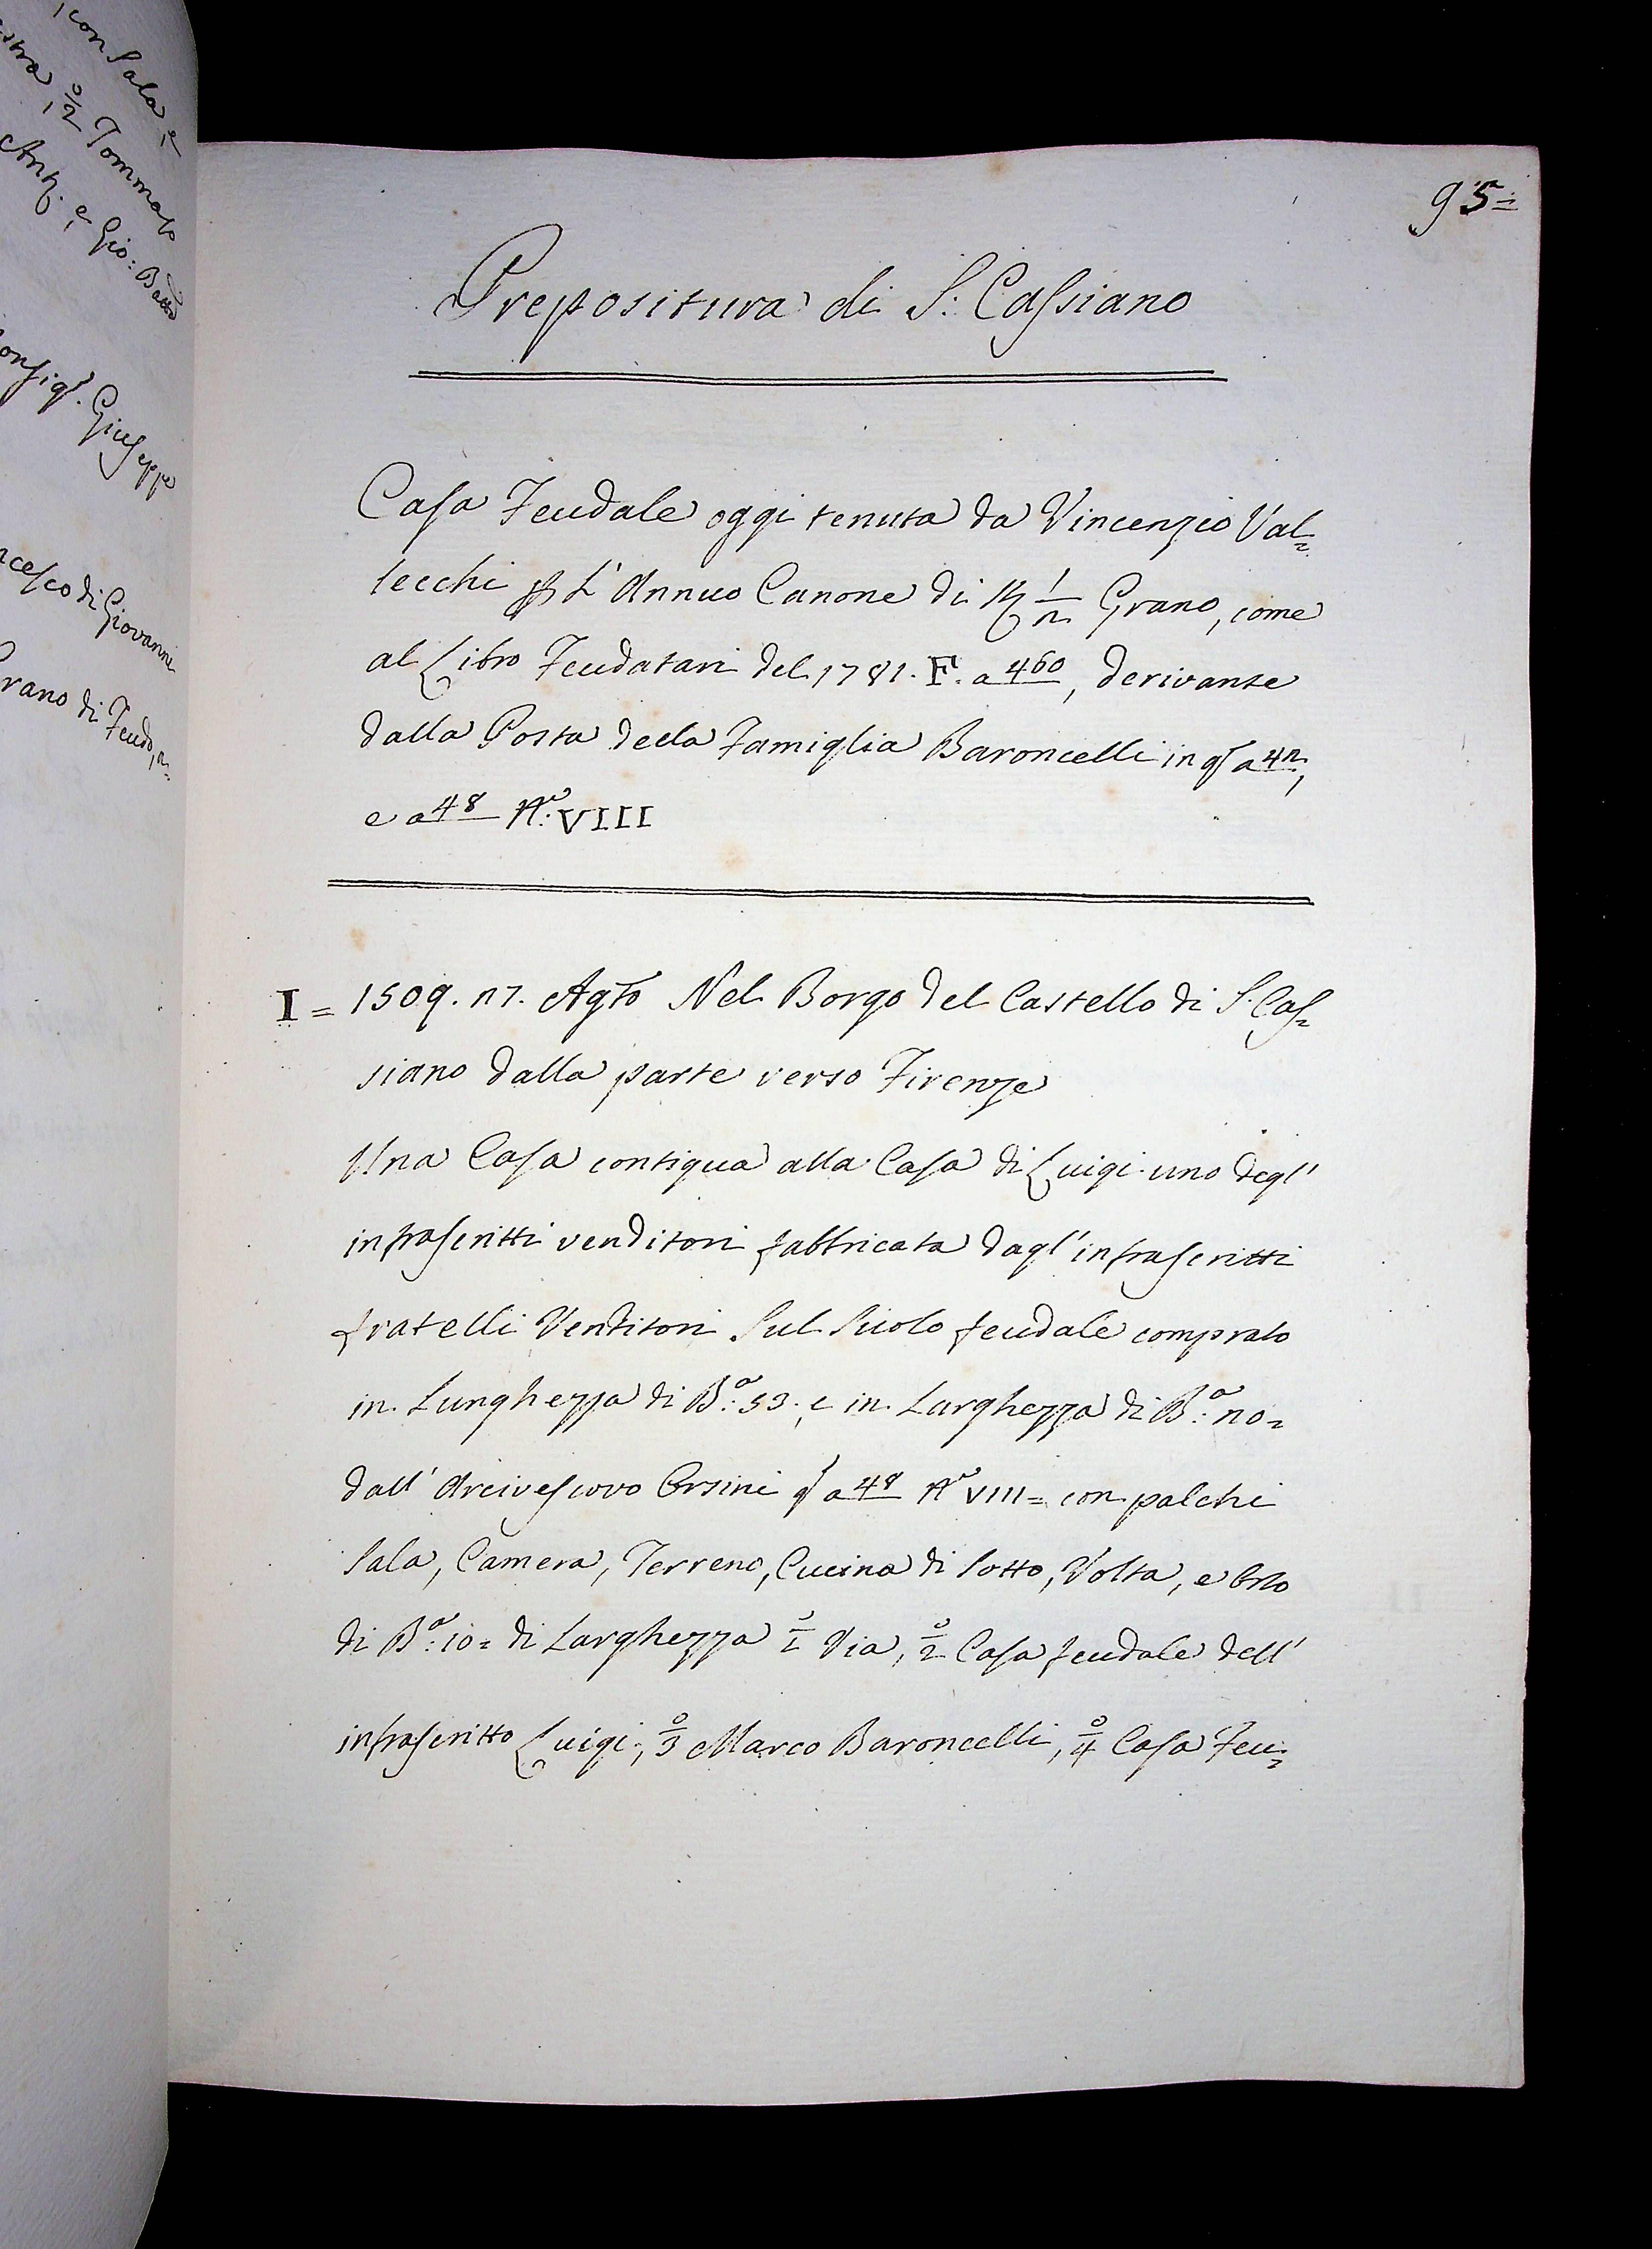 con Sala, e
stra, 0/2 Tommaso
Ant. e Gio: Batta
onsigl. Giuseppe
ncesco di Giovanni
Grano di Feudo,
95=
Prepositura di S: Cassiano
Casa Feudale oggi tenuta da Vincenzio Val=
lecchi p L'Annuo Canone di 1/2 Grano, come
al Libro Feudatari del 1781. F. a 460, derivante
dalla Posta della Famiglia Baroncelli in qto a 42,
e a 48 No: VIII
I = 1509. 27. Agto Nel Borgo del Castello di S. Cas=
siano dalla parte verso Firenze
Una Casa contigua alla Casa di Luigi uno degl'
infrascritti venditori fabbricata dagl'infrascritti
fratelli Venditori Sul Suolo feudale comprato
in Lunghezza di Ba: 53. e in Larghezza di Ba: 20=
dall'Arcivescovo Orsini a 48 No VIII= con palchi
Sala, Camera, Terreno, Cucina di Sotto, Volta, e Orto
di Ba: 10= di Larghezza 0/1 Via, 0/2 Casa feudale dell'
infrascritto Luigi, 0/3 Marco Baroncelli, 0/4 Casa Feu=